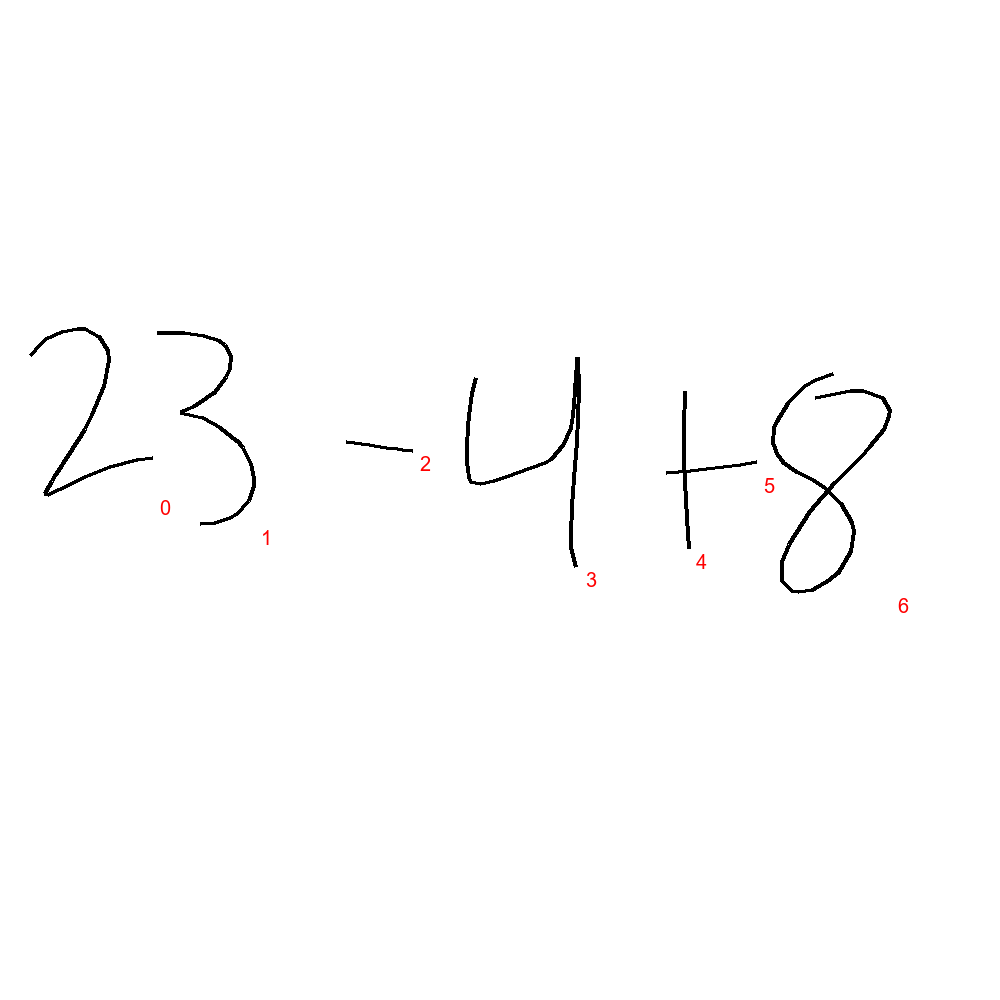 23 - 4 + 8
0 1 2 3 4 5 6